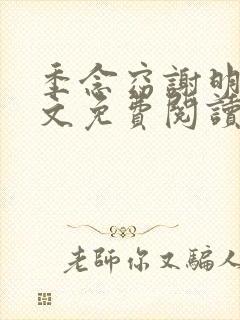 季念窈謝明
文免費閱讀
老師你又騙人